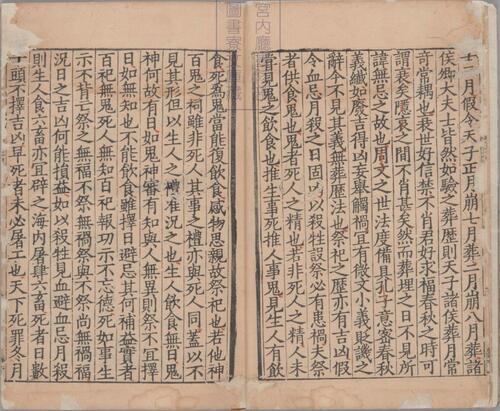 十二月假令天子正月崩七月葬二月崩八月葬諸
侯卿大夫士皆然如驗之葬歷則天子諸侯葬月常
奇常耦也衰世好信禁不肖君好求福春秋之時可
謂衰矣隱哀之間不肖甚矣然而葬埋之日不見所
諱無忌之故也周文之世法度備具孔子意密春秋
義纖如廢吉得凶妄舉觸禍宜有微文小義貶譏之
辭今不見其義無葬歷法也祭祀之歷亦有吉凶假
令血忌月殺之日固凶以殺牲設祭必有患禍夫祭
者供食鬼也鬼者死人之精也若非死人之精人未
嘗見鬼之飲食也推生事死推人事鬼見生人有飲
食死為鬼當能復飲食感物思親故祭祀也若他神
百鬼之祠雖非死人其事之禮亦與死人同蓋以不
見其形但以生人之禮准況之也生人飲食無日鬼
神何故有日如鬼神審有知與人無異則祭不宜擇
日如無知也不能飲食雖擇日避忌其何補益實者
百祀無鬼死人無知百祀報功示不忘德死如事生
示不背亡祭之無福不祭無禍祭與不祭尚無禍福
況日之吉凶何能損益如以殺牲見血避血忌月殺
則生人食六畜亦宜辟之海內屠肆六畜死者日數
千頭不擇吉凶早死者未必屠工也天下死罪冬月
宮内廳
圖書寮